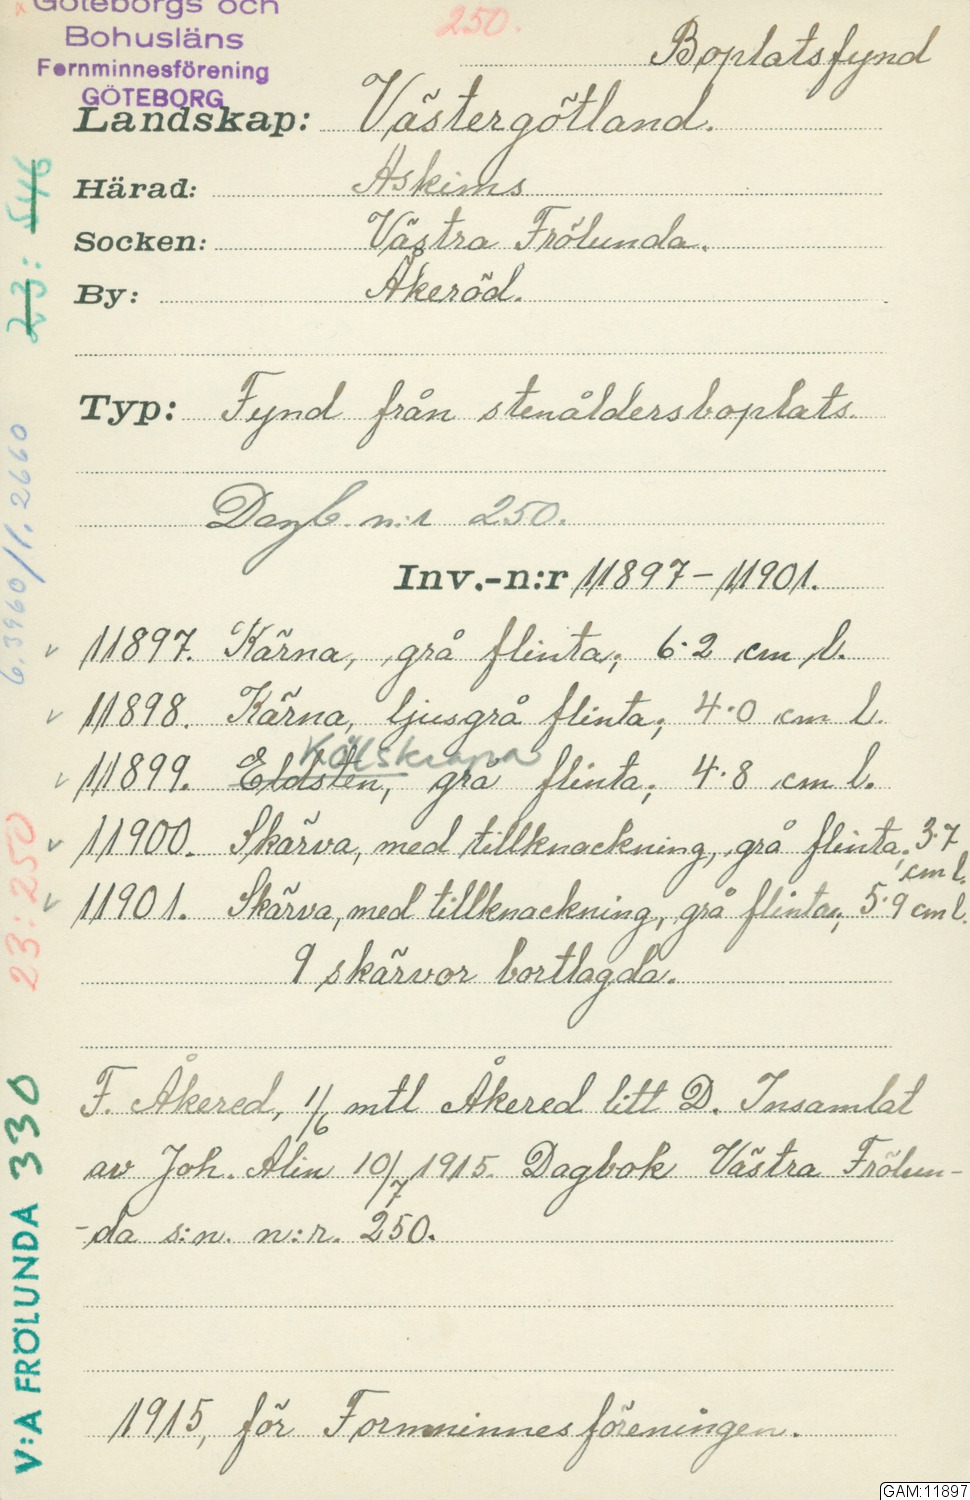 Göteborgs och
Bohusläns
Fornminnesförening
GÖTEBORG
250.
Boplatsfynd
Landskap: Västergötland.
Härad: Askims
Socken: Västra Frölunda.
By: Åkeröd.
Typ: Fynd från stenåldersboplats.
Dagb. n:r 250.
Inv.-n:r 11897-11901.
11897. Kärna, grå flinta; 6.2 cm l.
11898. Kärna, ljusgrå flinta; 4.0 cm l.
Kölskrapa
11899. Eldsten, grå flinta; 4.8 cm l.
11900. Skärva, med tillknackning, grå flinta; 3.7
cm l.
11901. Skärva, med tillknackning, grå flinta; 5.9 cm l.
9 skärvor bortlagda.
F. Åkered, 1/6 mtl Åkered litt D. Insamlat
av Joh. Alin 10/7 1915. Dagbok Västra Frölun-
-da s:n. n:r. 250.
1915, för Fornminnesföreningen.
23: 546
6.3960/1.2660
23:250
V:A FRÖLUNDA 330
GAM:11897